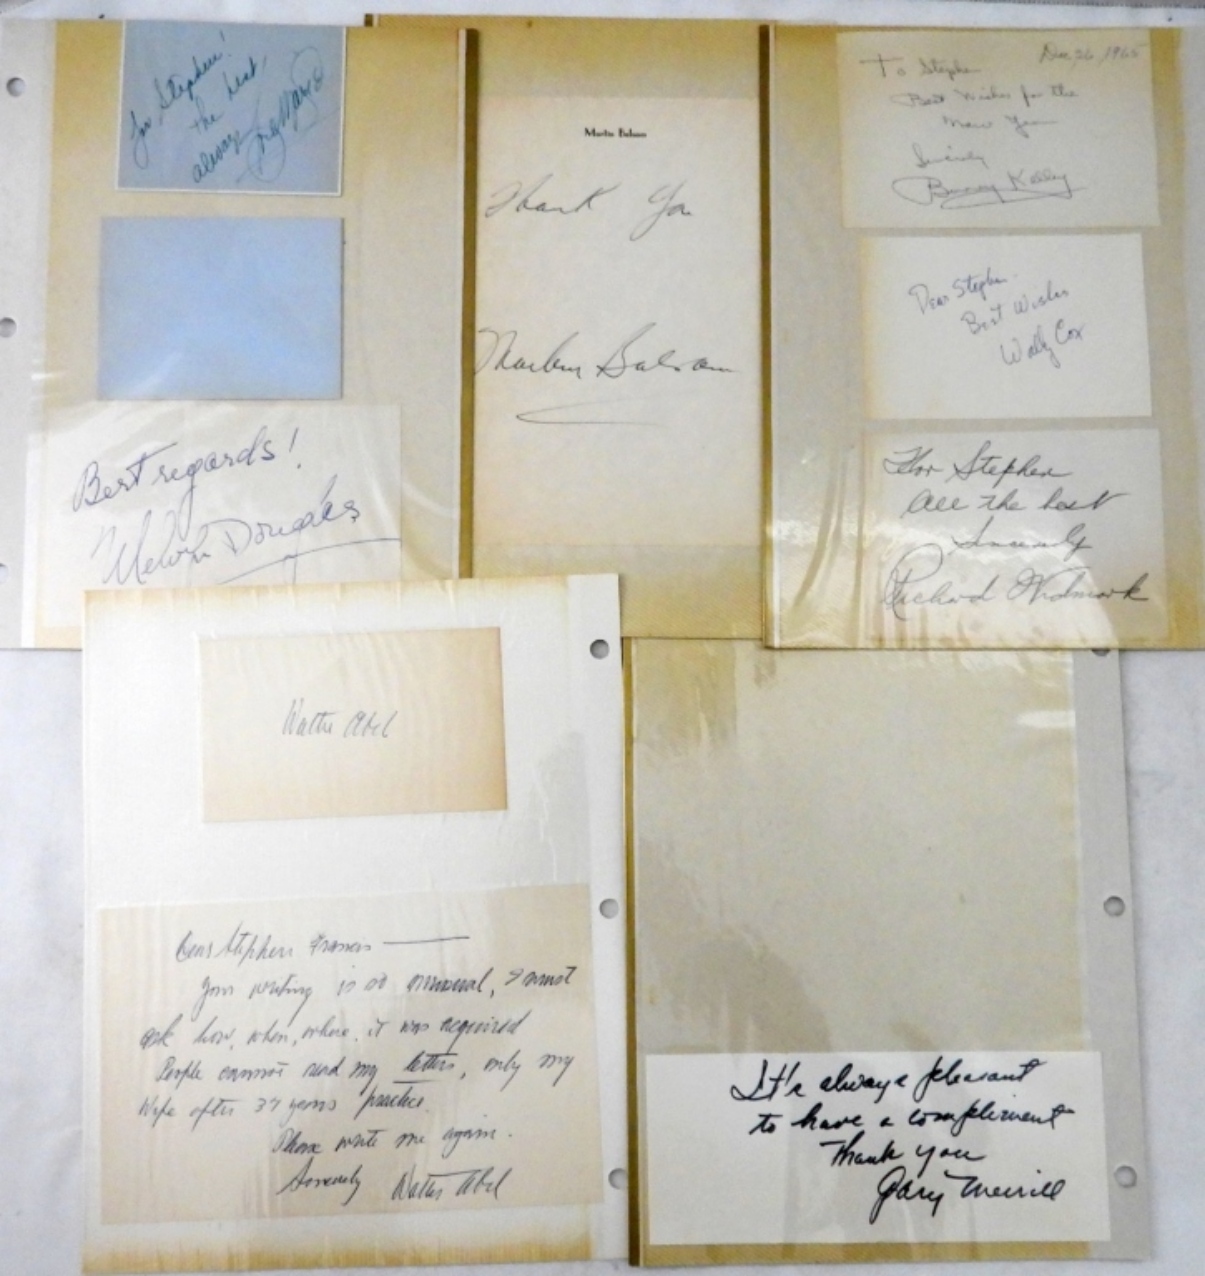 for Stephen!
the best,
always
Best regards!
Melvyn Douglas
Martin Balsam
Thank You
Martin Balsam
Dec, 26, 1965
To Stephen
Best Wishes for the
New Year
Sincerely
Dear Stephen
Best Wishes
Wally Cox
For Stephen
all the best
Sincerely
Richard Widmark
Walter Abel
Dear Stephen Francis
Your writing is so unusual, I must
ask how, when, where, it was acquired
People cannot read my letters, only my
Wife after 37 years practice.
Please write me again.
Sincerely Walter Abel
It's always pleasant
to have a compliment
Thank you
Gary Merrill